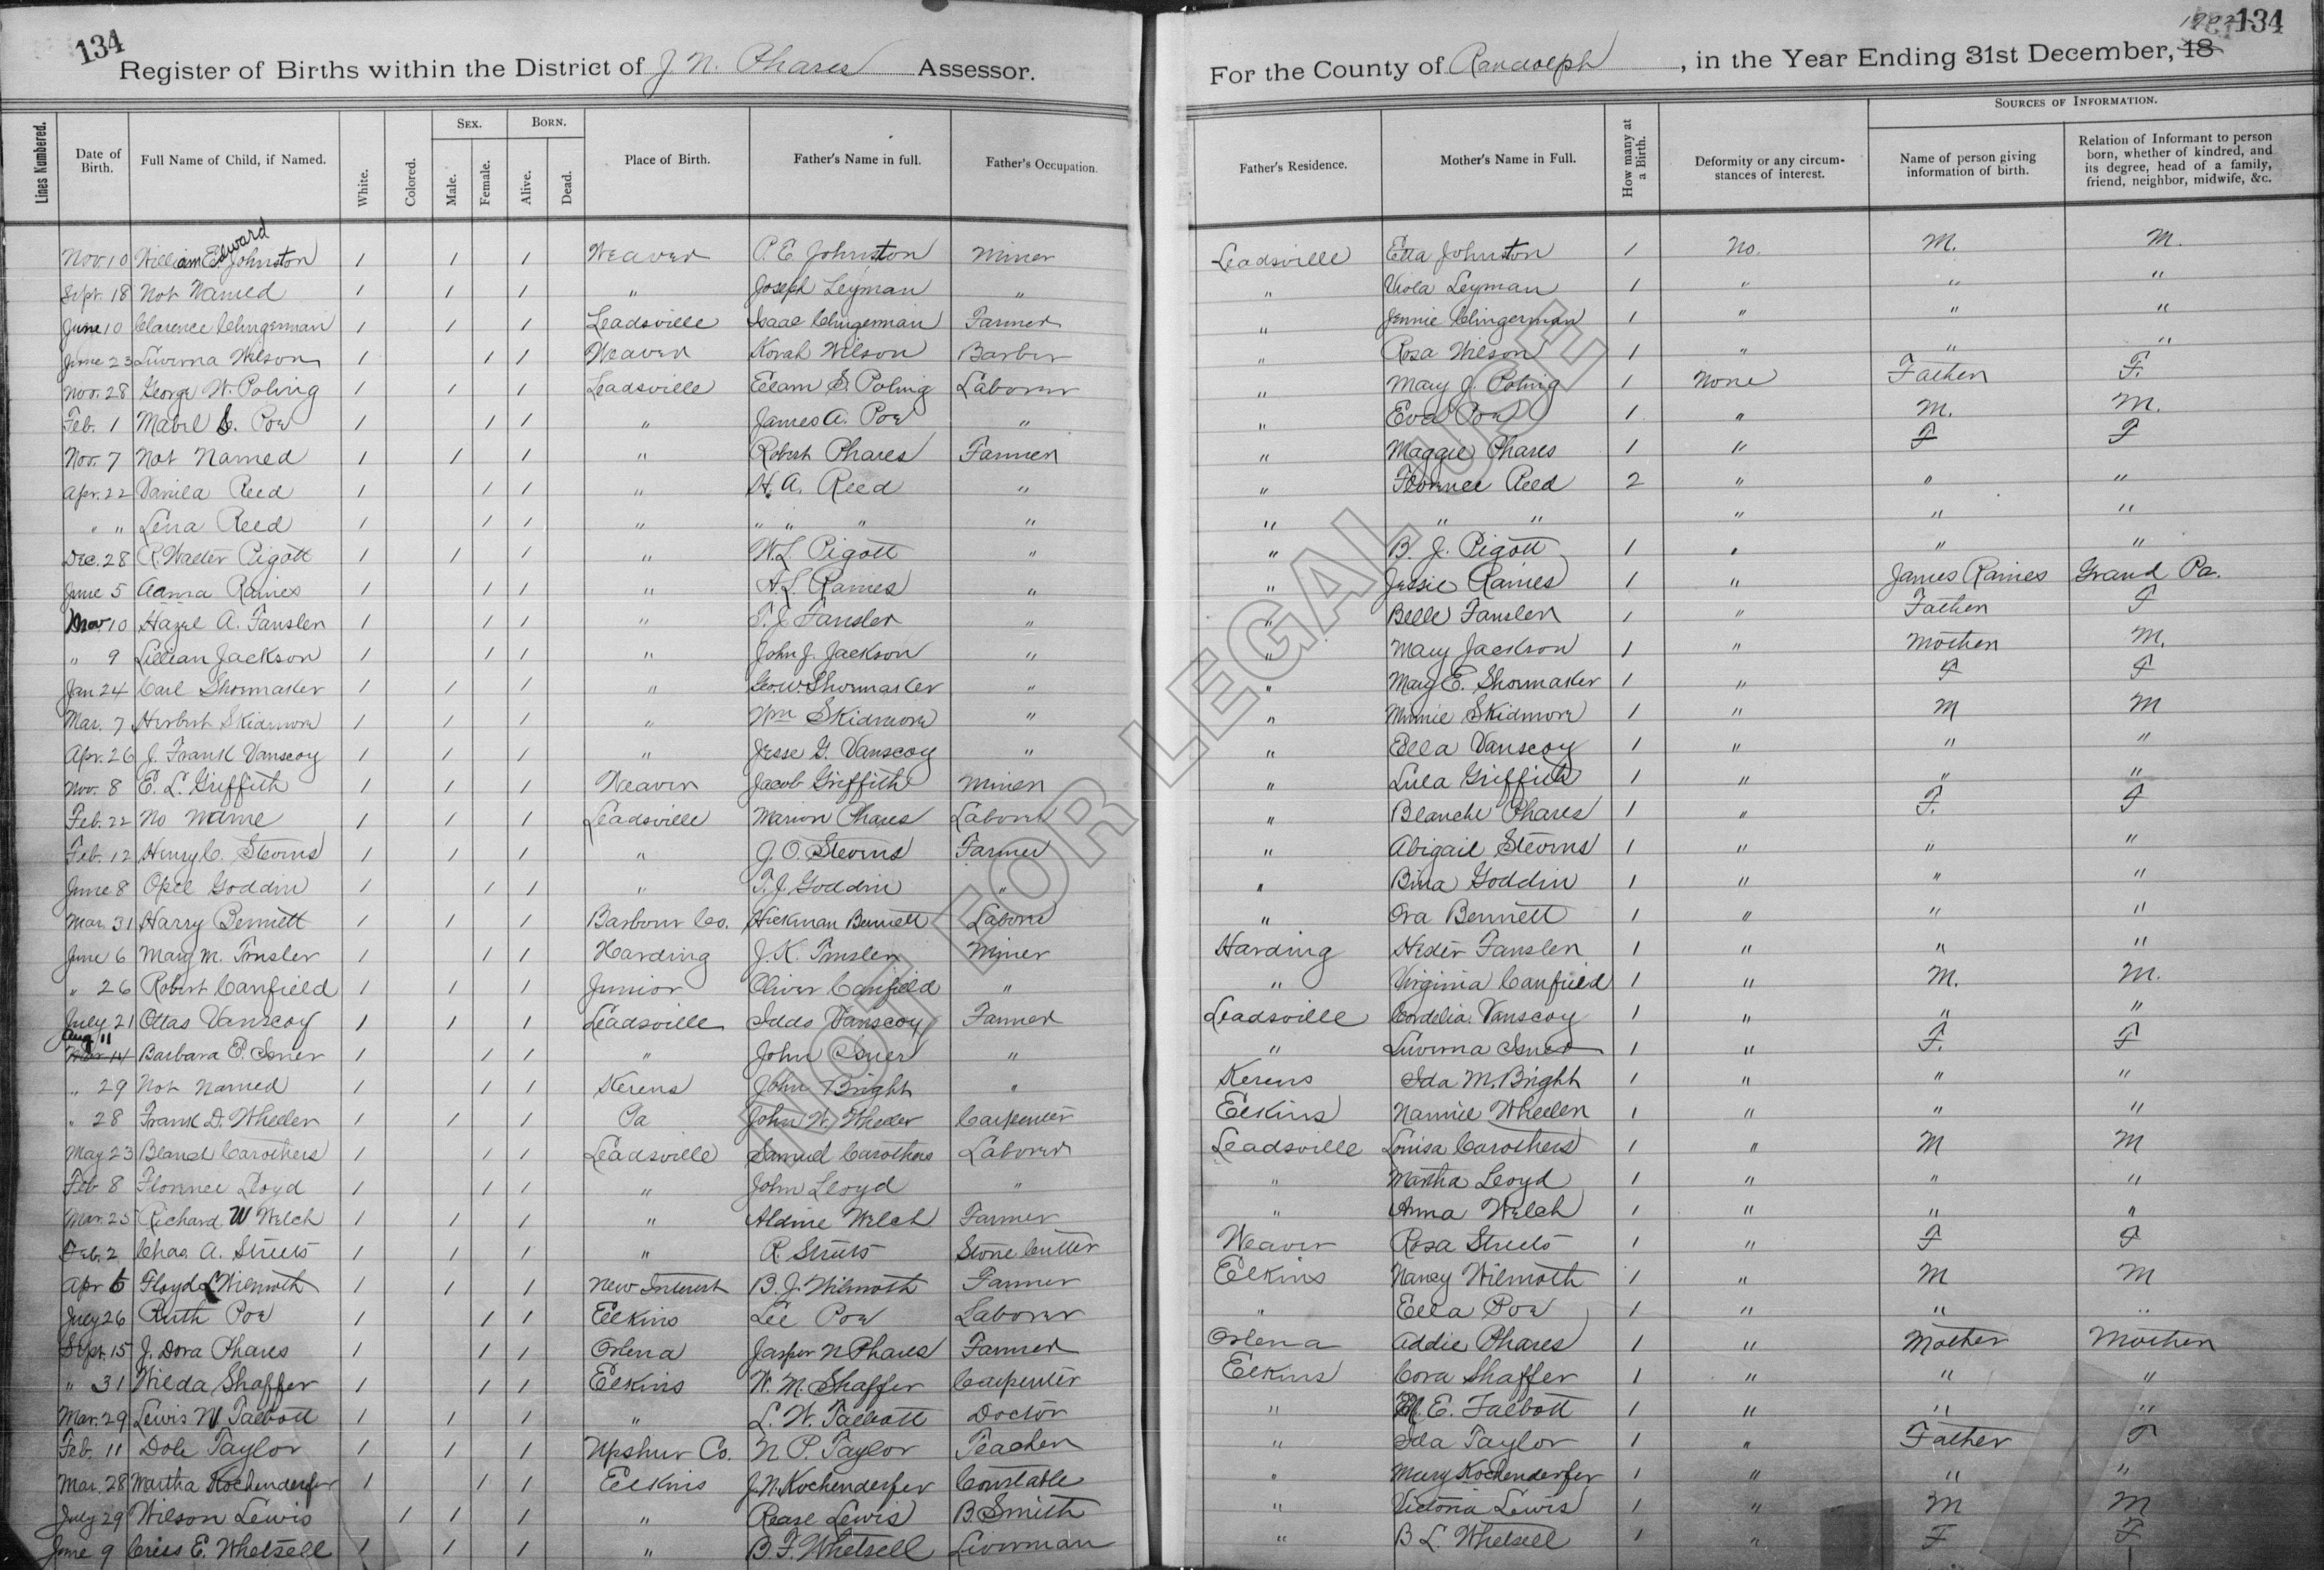 134
Register of Births within the District of J. N. Phares Assessor.
Lines Numbered. Date of Birth. Full Name of Child, if Named. White. Colored. Sex. Male. Female. Born. Alive. Dead. Place of Birth. Father's Name in full. Father's Occupation.
Nov. 10 William Edward Johnston 1 1 1 Weaver P. E. Johnston Miner
Sept. 18 Not Named 1 1 1 " Joseph Leyman "
June 10 Clarence Clingerman 1 1 1 Leadsville Isaac Clingerman Farmer
June 23 Luverna Wilson 1 1 1 Weaver Korah Wilson Barber
Nov. 28 George W. Poling 1 1 1 Leadsville Elam S. Poling Laborer
Feb. 1 Mabel Poe 1 1 1 " James A. Poe "
Nov. 7 Not Named 1 1 1 " Robert Phares Farmer
Apr. 22 Vanila Reed 1 1 1 " H. A. Reed "
" " Lena Reed 1 1 1 " " " " "
Dec. 28 R. Walter Pigott 1 1 1 " W. L. Pigott "
June 5 Raines 1 1 1 " A. L. Raines "
Nov 10 Hazel A. Fansler 1 1 1 " T. J. Fansler "
" 9 Lillian Jackson 1 1 1 " John J. Jackson "
Jan 24 Carl Shoemaker 1 1 1 " Geo. W. Shoemaker "
Mar. 7 Herbert Skidmore 1 1 1 " Wm Skidmore "
Apr. 26 J. Frank Vanscoy 1 1 1 " Jesse G. Vanscoy "
Nov. 8 E. L. Griffith 1 1 1 Weaver Jacob Griffith Miner
Feb. 22 No Name 1 1 1 Leadsville Marion Phares Labore
Feb. 12 Henry C. Steorns 1 1 1 " J. O. Steorns Farmer
June 8 Opel Goddin 1 1 1 " T. J. Goddin "
Mar. 31 Harry Bennett 1 1 1 Barbour Co. Hickman Bennett Labore
June 6 Mary M. Fansler 1 1 1 Harding J. K. Fansler Miner
" 26 Robert Canfield 1 1 1 Junior Oliver Canfield "
July 21 Ottas Vanscoy 1 1 1 Leadsville Iddo Vanscoy Farmer
Aug 11
Mar 14 Barbara E. Isner 1 1 1 " John Isner "
" 29 Not Named 1 1 1 Kerens John Bright "
" 28 Frank D. Wheeler 1 1 1 Pa John W. Wheeler Carpenter
May 23 Bland Carothers 1 1 1 Leadsville Samuel Carothers Laborer
Feb 8 Florence Lloyd 1 1 1 " John Lloyd "
Mar. 25 Richard W Welch 1 1 1 " Aldine Welch Farmer
Feb. 2 Chas. A. Streets 1 1 1 " R Streets Stone Cutter
Apr 6 Floyd L Wilmoth 1 1 1 New Interest B. J. Wilmoth Farmer
July 26 Ruth Poe 1 1 1 Elkins Lee Poe Laborer
Sept. 15 J. Dora Phares 1 1 1 Orlena Jasper N Phares Farmer
" 31 Wilda Shaffer 1 1 1 Elkins W. M. Shaffer Carpenter
Mar. 29 Lewis W Talbott 1 1 1 " L. W. Talbott Doctor
Feb. 11 Dole Taylor 1 1 1 Upshur Co. N P. Taylor Teacher
Mar. 28 Martha Kochenderfer 1 1 1 Elkins J. N. Kochenderfer Constable
July 29 Wilson Lewis 1 1 1 " Rease Lewis B Smith
June 9 E. Whetsell 1 1 1 " B. F. Whetsell Liverman
1902 134
For the County of Randolph, in the Year Ending 31st December, 18
Father's Residence. Mother's Name in Full. How many at a Birth. Deformity or any circumstances of interest. Sources of Information. Name of person giving information of birth. Relation of Informant to person born, whether of kindred, and its degree, head of a family, friend, neighbor, midwife, &c.
Leadsville Etta Johnston 1 No. M. M.
" Viola Leyman 1 " " "
" Jennie Clingerman 1 " " "
" Rosa Wilson 1 " " "
" Mary J. Poling 1 None Father F.
" Eva Poe 1 " M. M.
" Maggie Phares 1 " F F
" Florence Reed 2 " " "
" " " " " "
" B. J. Pigott 1 " " "
" Jessie Raines 1 " James Raines Grand Pa.
" Belle Fansler 1 " Father F
" Mary Jackson 1 " Mother M.
" Mary E. Shoemaker 1 " F F
" Minnie Skidmore 1 " M M
" Ella Vanscoy 1 " " "
" Lula Griffith 1 " " "
" Blanche Phares 1 " F. F
" Abigail Steorns 1 " " "
" Bina Goddin 1 " " "
" Ora Bennett 1 " " "
Harding Hester Fansler 1 " " "
" Virginia Canfield 1 " M. M.
Leadsville Cordelia Vanscoy 1 " " "
" Luverna Isner 1 " F. F
Kerens Ida M. Bright 1 " " "
Elkins Nannie Wheeler 1 " " "
Leadsville Louisa Carothers 1 " M M
" Martha Lloyd 1 " " "
" Anna Welch 1 " " "
Weaver Rosa Streets 1 " F F
Elkins Nancy Wilmoth 1 " M M
" Ella Poe 1 " " "
Orlena Addie Phares 1 " Mother Mother
Elkins Cora Shaffer 1 " " "
" M. E. Talbott 1 " " "
" Ida Taylor 1 " Father F
" Mary Kochenderfer 1 " " "
" Victoria Lewis 1 " M M
" B L Whetsell 1 " F F
NOT FOR LEGAL USE